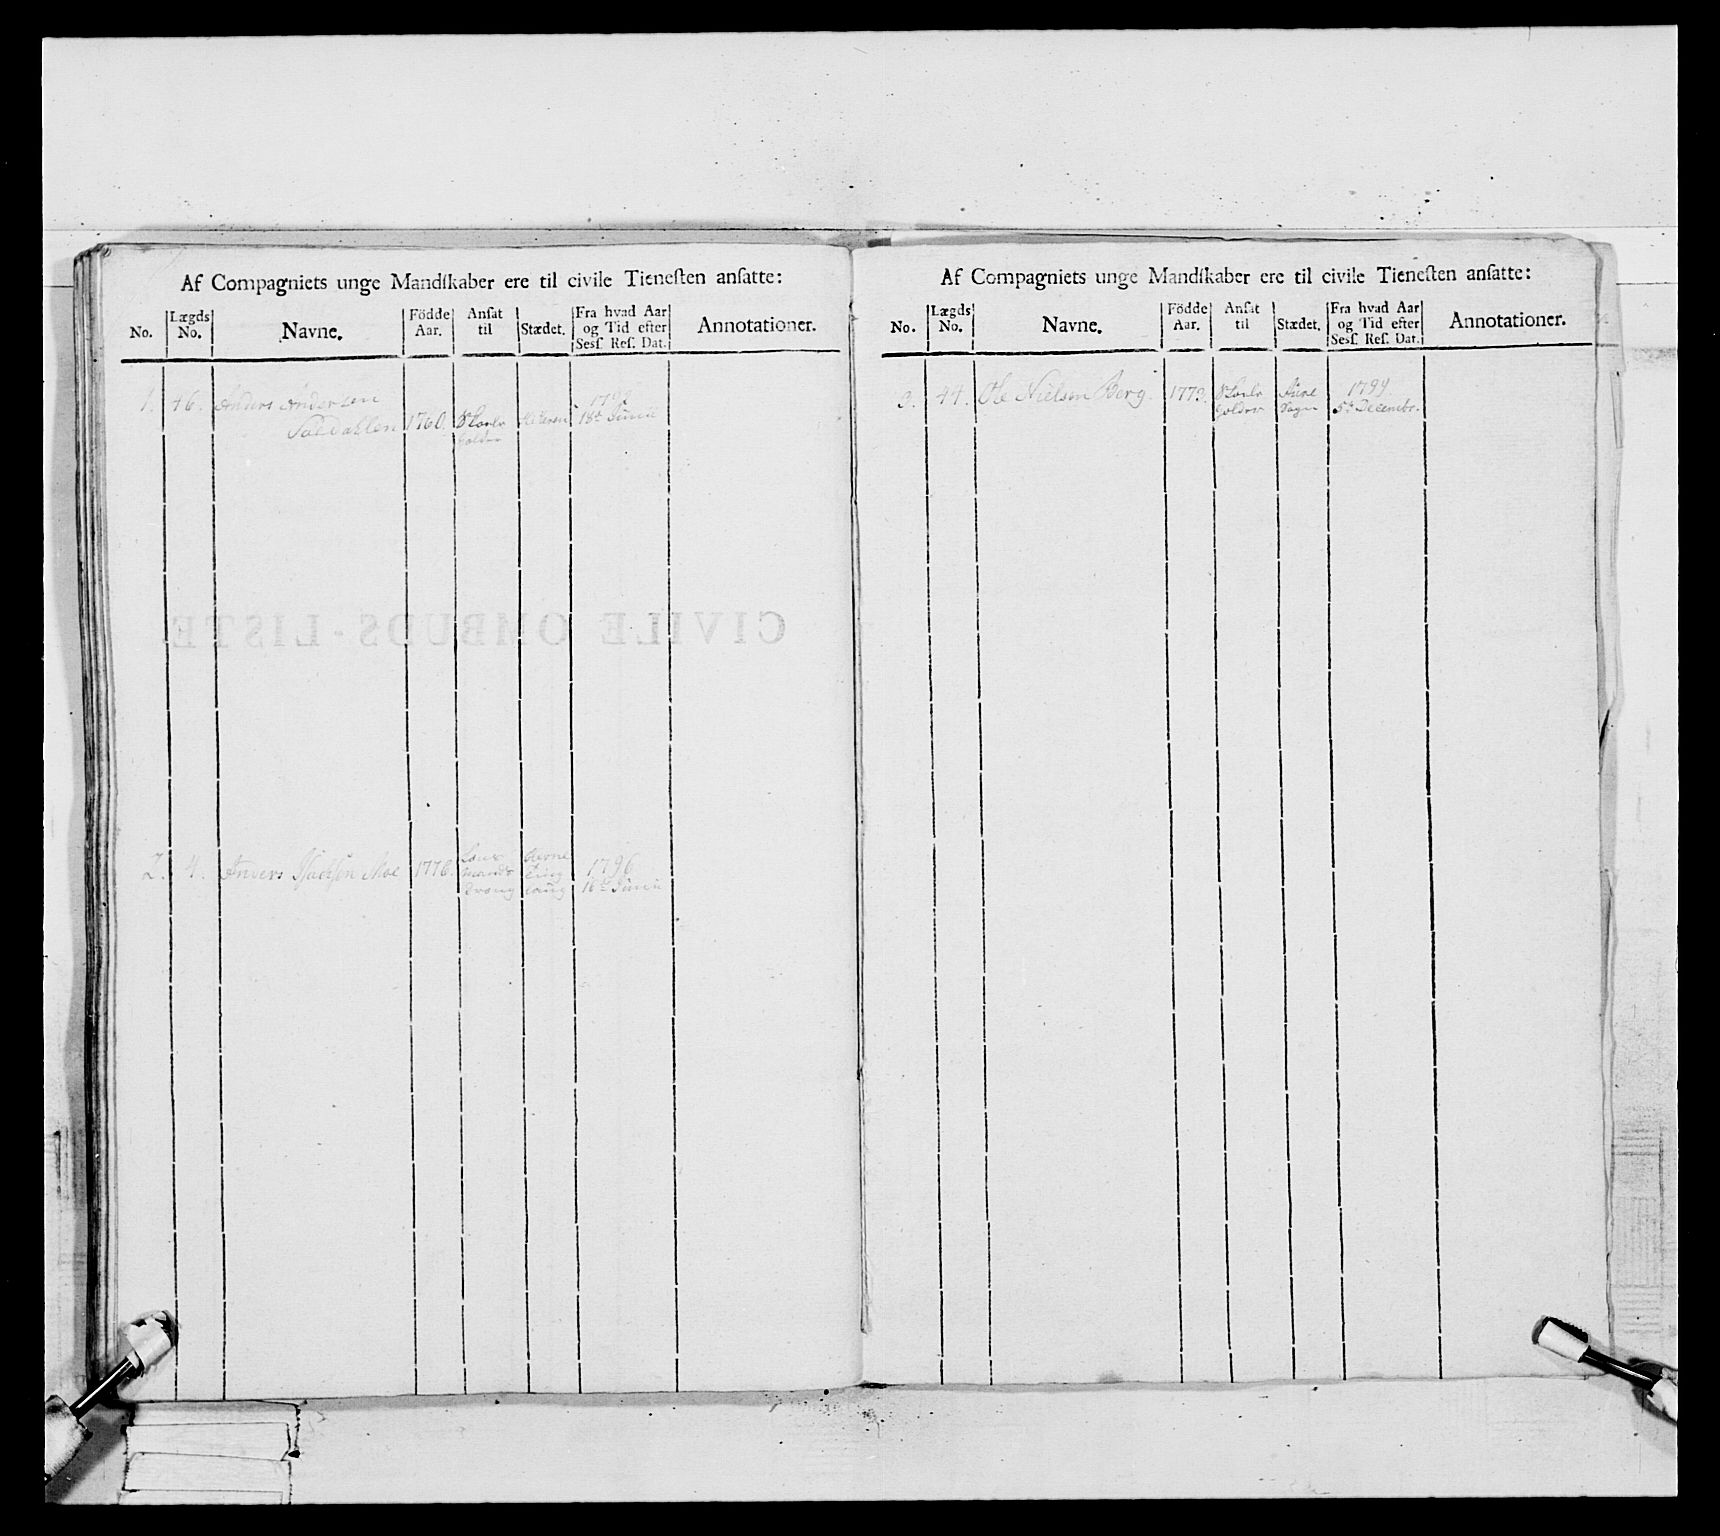 Af Compagniets unge Mandſkaber ere til civile Tieneſten anſatte:
No. Lægds No. Navne. Födde Aar. Anſat til Stædet. Fra hvad Aar og Tid efter Sesſ. Reſ. Dat. Annotationer.
1. 46. Anders Andersen 1792
1760. Skoele 18de Junii
holder
CIVILE OMBUDS-LISTE
2. 4. Moe 1778. 1796
mands Ting
Dreng laug 16de Junii
Af Compagniets unge Mandſkaber ere til civile Tieneſten anſatte:
No. Lægds No. Navne. Födde Aar. Anſat til Stædet. Fra hvad Aar og Tid efter Sesſ. Reſ. Dat. Annotationer.
3. 44. Ole Nielsen Berg. 1773. Skoele 1799
holder Sogn 5te Decembr.